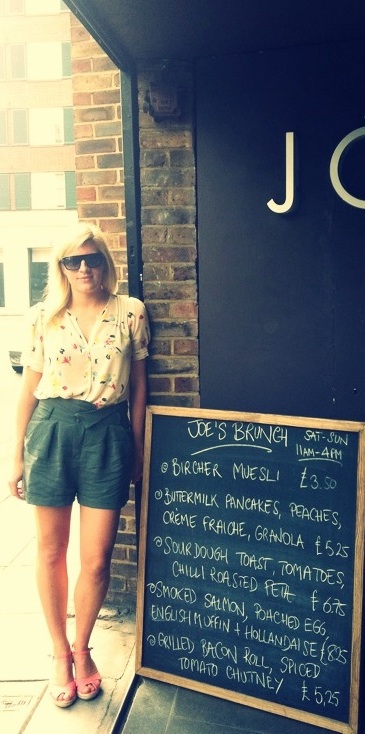 JO
JOE'S BRUNCH SAT-SUN
11AM-4PM
BIRCHER MUESLI £3.50
BUTTERMILK PANCAKES, PEACHES,
CRÈME FRAICHE, GRANOLA £5.25
SOURDOUGH TOAST, TOMATOES,
CHILLI ROASTED FETA £6.75
SMOKED SALMON, POACHED EGG,
ENGLISH MUFFIN + HOLLANDAISE £8.25
GRILLED BACON ROLL, SPICED
TOMATO CHUTNEY £5,25